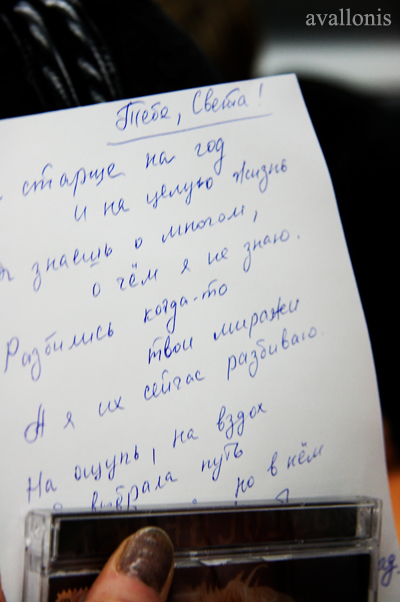 avallonis
Тебе, Света!
старше на год
и на целую жизнь
знаешь о многом,
о чём я не знаю.
Разбились когда-то
твои миражи
А я их сейчас разбиваю.
На ощупь, на вздох
выбрала путь
но в нём